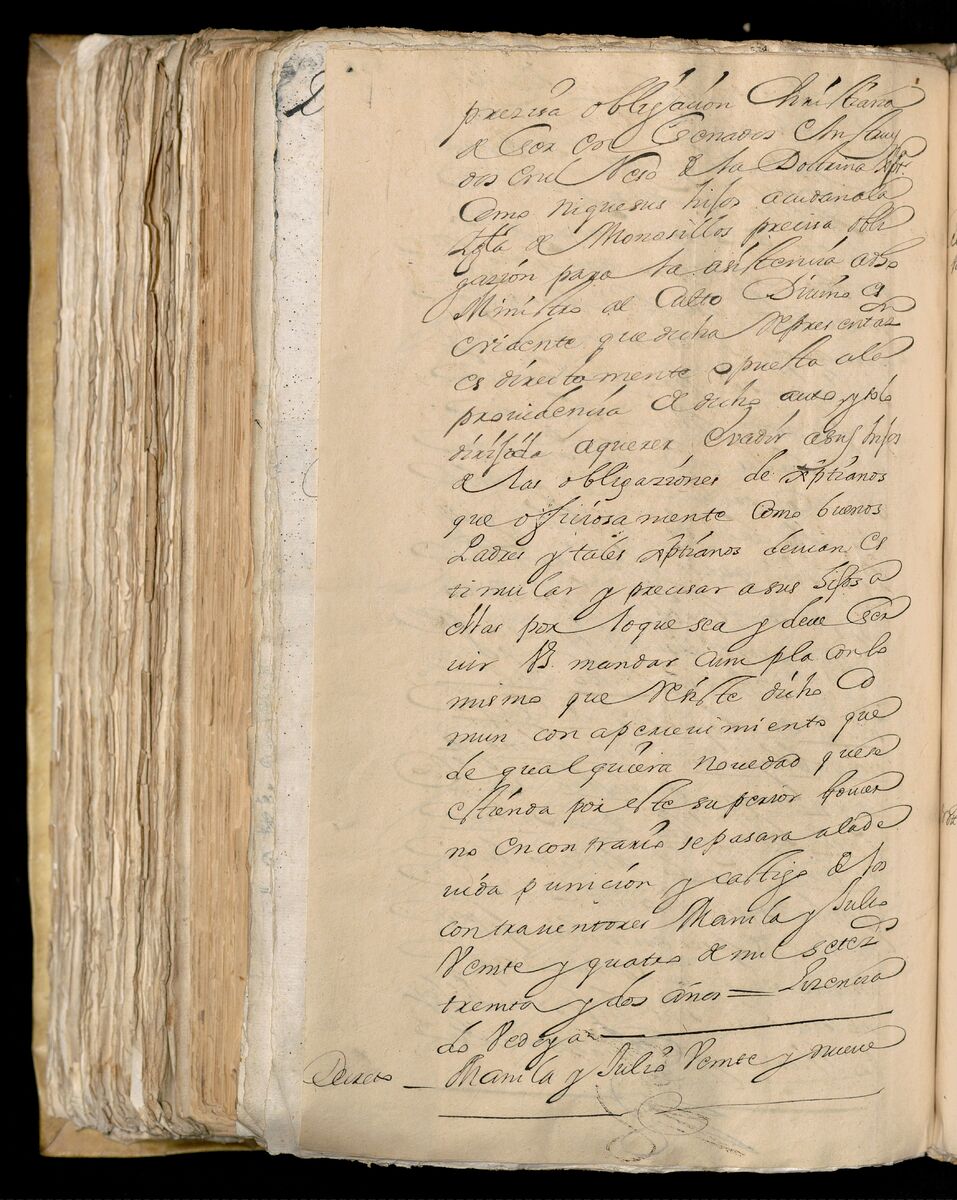 precisa obligazion Christiana
de Ser en Señados e Instruy
dos en el Reso de la Doctrina Xptna
Como ni que sus hijos acudan ala
Iglª de Monasillos precisa obli
gazion para la asistencia a dho
Ministro al Culto Divino es
evidente que dicha representazn
es directamente opuesta ala
providencia de dicho auto y solo
dirijida a querer evadir a sus hijos
de las obligaziones de Xptianos
que officiosamente Como buenos
Padres y tales Xptianos devian es
timular y precisar a sus hijos a
ellas por lo que sea y deve Ser
vir VS. mandar cumpla con lo
mismo que resiste dicho Co
mun con apercivimiento que
de qualquiera novedad que se
estienda por este superior Govier
no en contrario se pasara ala de
vida punicion y castigo de los
contraventores Manila y Julio
Veinte y quatro de mil setezs
treinta y dos años = Lizencia
do Vedoya
Decreto — Manila y Julio Veinte y nueve